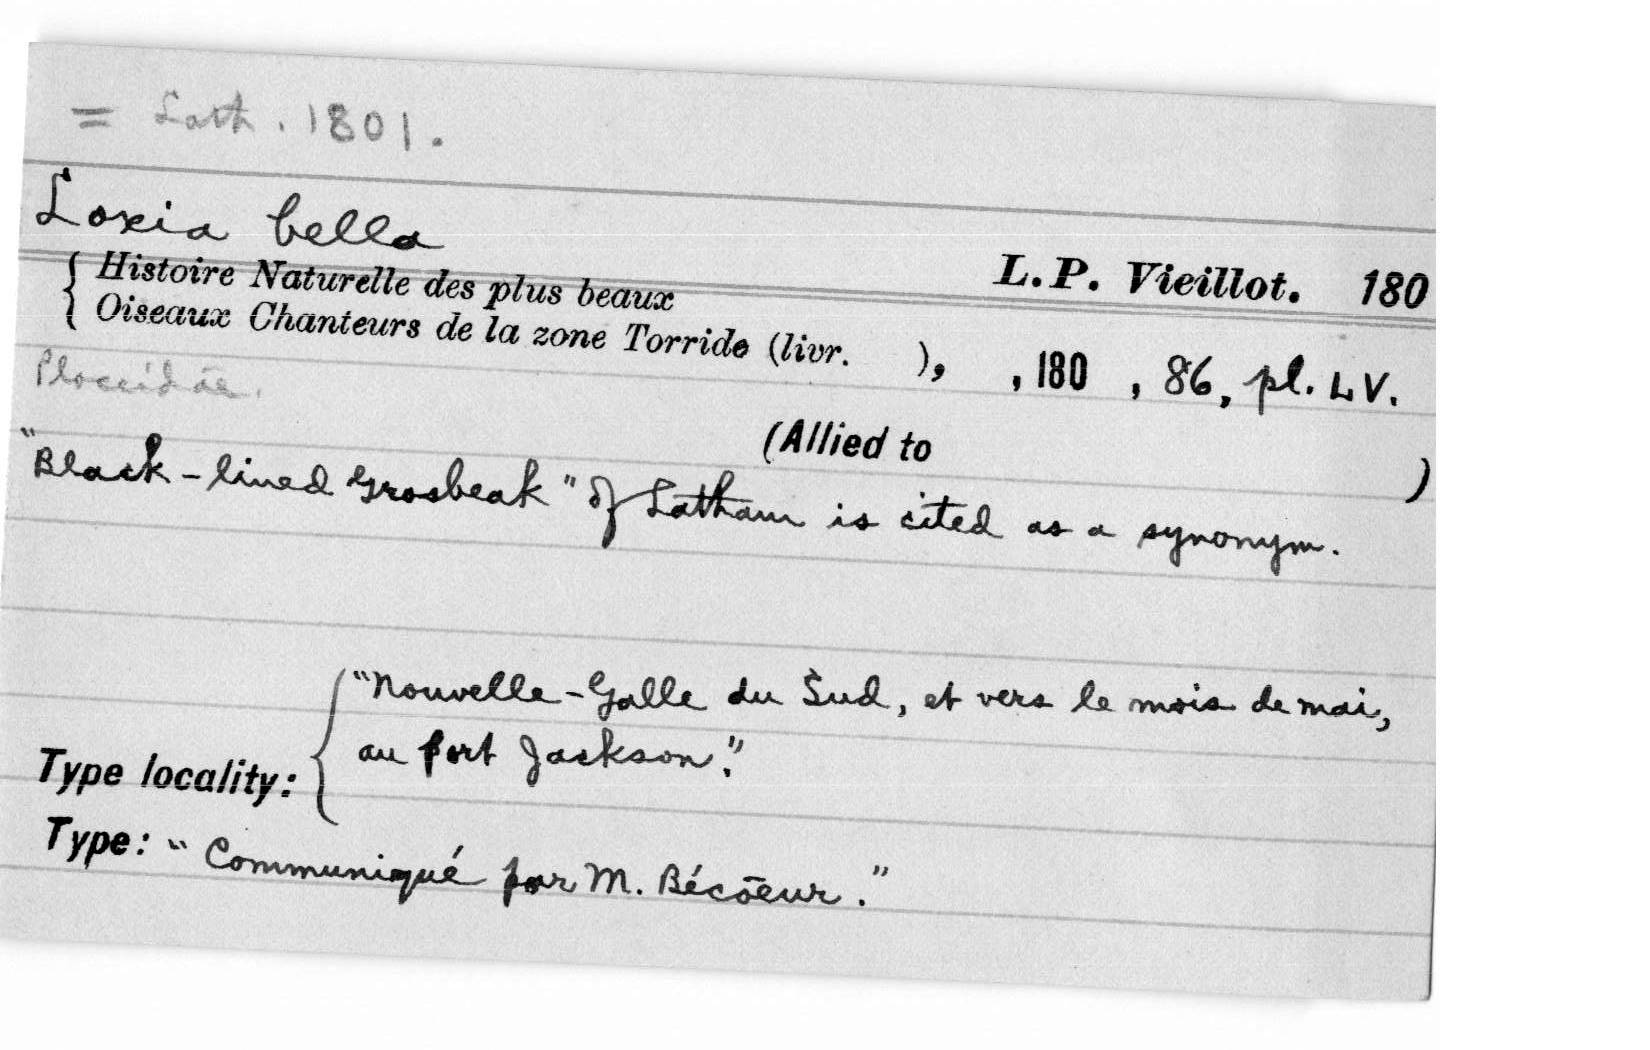 = Lath. 1801.
Loxia bella
L.P. Vieillot. 180
{ Histoire Naturelle des plus beaux
Oiseaux Chanteurs de la zone Torride (livr. ), , 180 , 86, pl. LV.
Ploceidae.
(Allied to )
"Black-lined Grosbeak" of Latham is cited as a synonym.
Type locality: { "Nouvelle-Galle du Sud, et vers le mois de mai,
au port Jackson."
Type: "Communiqué par M. Bécoeur."